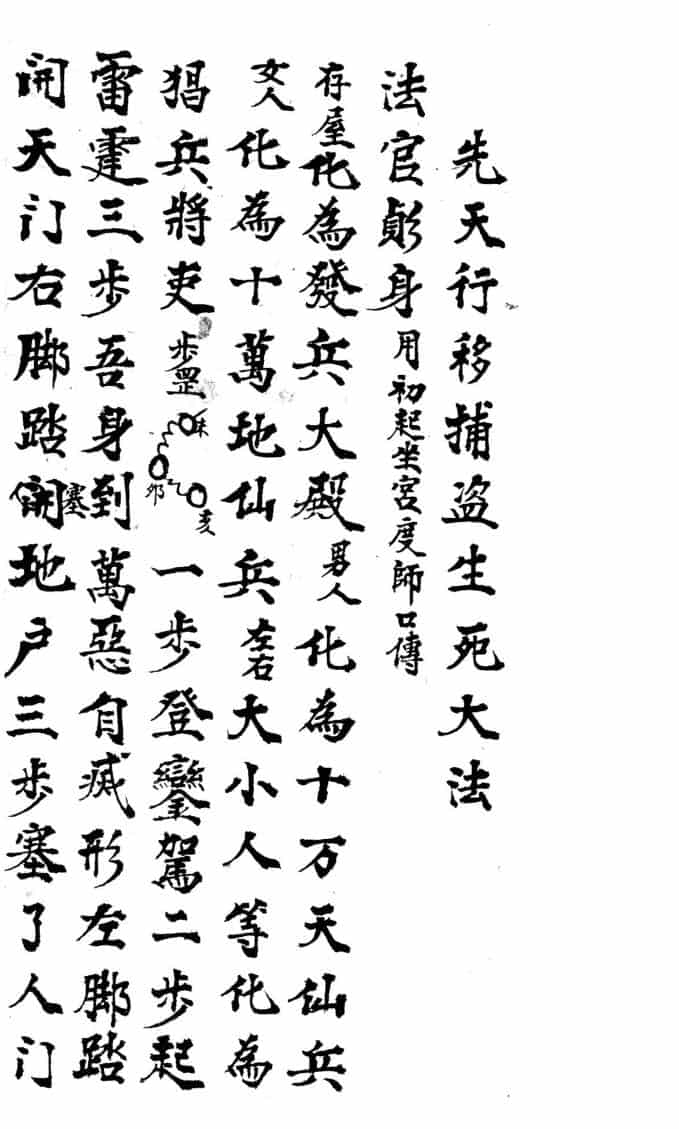 先天行移捕盗生死大法
法官身用初起坐宮度師口傳
存屋化為發兵大殿男人化為十万天仙兵
女人化為十萬地仙兵左右大小人等化為
猖兵將吏步罡未卯亥一步登鑾駕二步起
雷霆三步吾身到萬惡自滅形左脚踏
開天门右脚踏開塞地户三步塞了人门